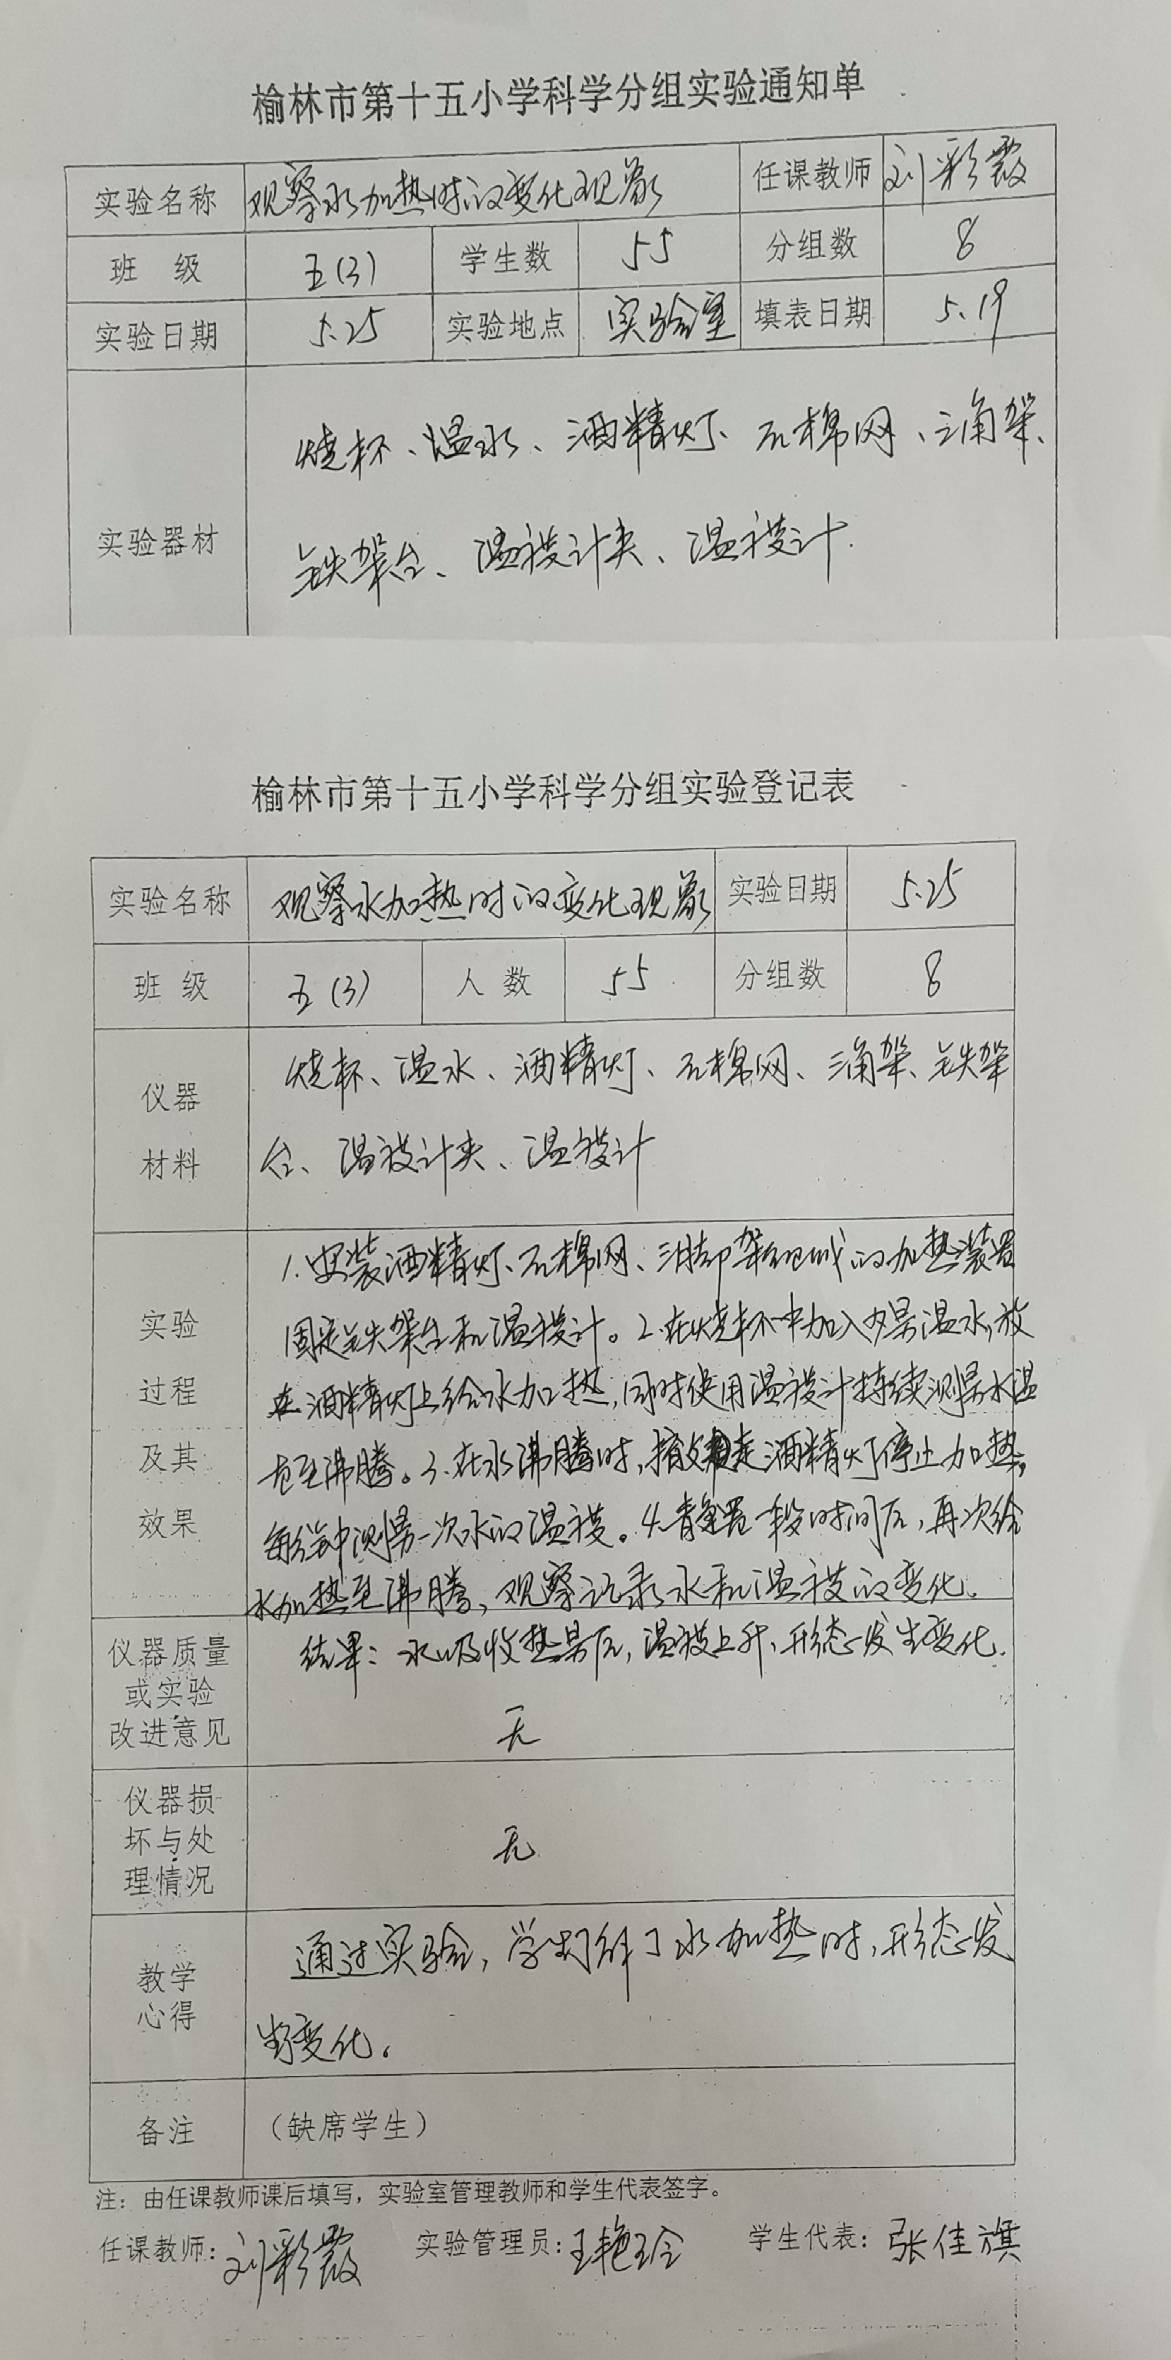 榆林市第十五小学科学分组实验通知单
实验名称 观察水加热时的变化现象 任课教师 刘彩霞
班 级 五(3) 学生数 55 分组数 8
实验日期 5.25 实验地点 实验室 填表日期 5.19
烧杯、温水、酒精灯、石棉网、三角架、
实验器材
铁架台、温度计夹、温度计.
榆林市第十五小学科学分组实验登记表
实验名称 观察水加热时的变化现象 实验日期 5.25
班 级 五(3) 人 数 55 分组数 8
仪器
材料
烧杯、温水、酒精灯、石棉网、三角架、铁架
台、温度计夹、温度计
实验
过程
及其
效果
1.安装酒精灯、石棉网、三脚架组成的加热装置
固定铁架台和温度计。2.在烧杯中加入少量温水,放
在酒精灯上给水加热,同时使用温度计持续测量水温
直至沸腾。3.在水沸腾时,撤走酒精灯停止加热,
每分钟测量一次水的温度。4.静置一段时间后,再次给
水加热至沸腾,观察记录水和温度的变化.
结果:水吸收热量后,温度上升,形态发生变化.
仪器质量
或实验
改进意见
无
仪器损
坏与处
理情况
无
教学
心得
通过实验,学生们了解了水加热时,形态发
生变化。
备注 （缺席学生）
注：由任课教师课后填写，实验室管理教师和学生代表签字。
任课教师：刘彩霞 实验管理员：王艳玲 学生代表：张佳旗